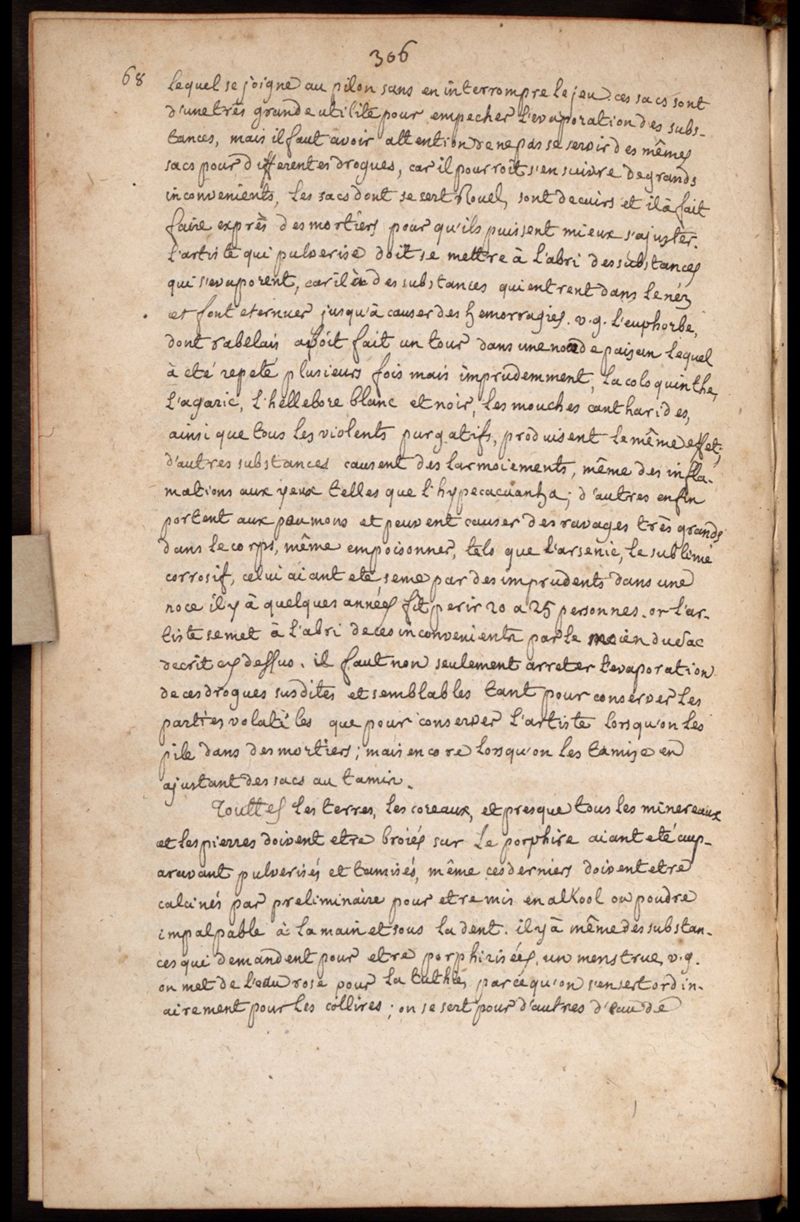 306
68
lequel se joigne au pilon sans en interrompre le jeu. ces sacs sont
d'une très grande utilité pour empecher l'evaporation des subs-
tances, mais il faut avoir attention de ne pas se servir des mêmes
sacs pour differentes drogues, car il pourroit s'en suivre de grands
inconvenients, Les sacs dont se sert Rouel, sont de cuirs et il à fait
faire exprès des mortiers pour qu'ils puissent mieux s'ajuster.
l'artiste qui pulverise doit se mettre à l'abri des substances
qui s'evaporent, car il à des substances qui entrent dans le néz
et font eternuer jusqu'à causer des hemorragies. v.g. l'euphorbe,
dont rabelais avoit fait un tour dans une noce de paisan lequel
à eté repeté plusieurs fois mais imprudemment, la coloquinthe,
l'agaric, l'hellebore blanc et noir, les mouches cantharides,
ainsi que tous les violents purgatifs, produisent le même effet;
d'autres substances causent des larmoiements, même des infla-
mations aux yeux telles que l'hypecacuanha; d'autres enfin
portent aux poumons et peuvent causer des ravages très grands
dans le corps, même empoisonner, tels que l'arsenic, le sublimé
corrosif, celui aiant eté semé par des imprudents dans une
noce il y à quelques années fit perir 20 a 25 personnes. or l'ar-
tiste se met à l'abri de ces inconvenients par le moien du sac
decrit cy dessus. il faut non seulement arreter l'evaporation
de ces drogues susdites et semblables tant pour conserver les
parties volatiles que pour conserver l'artiste lorsqu'on les
pile dans des mortiers; mais encore lorsqu'on les tamise en
ajustant des sacs au tamis.
Touttes les terres, les coreaux, et presque tous les minereaux
et les pierres doivent etre broiés sur le porphire aiant eté aup-
aravant pulverisés et tamisés, même ces derniers doivent etre
calcinés par preliminaire pour etre mis en alkool ou poudre
impalpable à la main et sous la dent. il y à même des substan-
ces qui demandent pour etre porphirisées, un menstrue, v.g.
on met de l'eau rose pour la tuthie, parcequ'on s'en sert ordin-
airement pour les collires; on se sert pour d'autres d'eau de